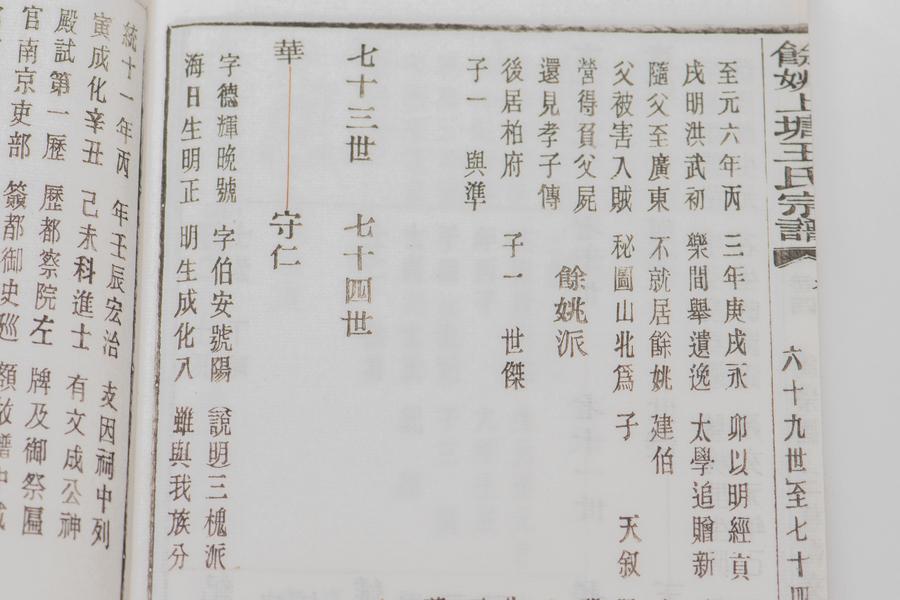 餘姚上塘王氏宗譜
六十九世至七十四
至元六年丙 三年庚戌永 卯以明經貢
戌明洪武初 樂間舉遺逸 太學追贈新
隨父至廣東 不就居餘姚 建伯
父被害入賊 秘圖山北爲 子一 天叙
營得負父屍
還見孝子傳 餘姚派
後居柏府 子一 世傑
子一 與準
七十三世 七十四世
華 守仁
字德輝晚號 字伯安號陽 說明三槐派
海日生明正 明生成化八 雖與我族分
統十一年丙 年壬辰宏治 支因祠中列
寅成化辛丑 己未科進士 有文成公神
殿試第一歷 歷都察院左 牌及御祭匾
官南京吏部 僉都御史巡 額故譜中